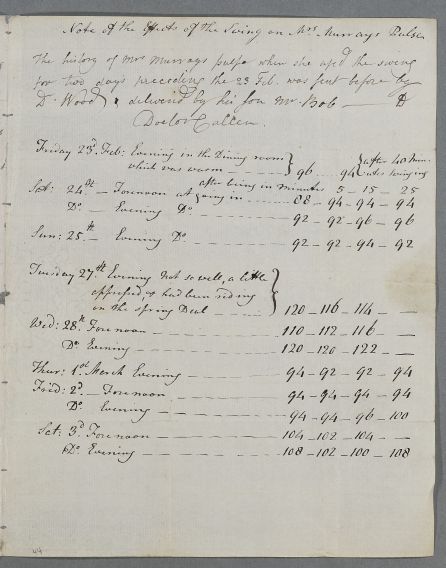 Note of the Effects of the Swing on Mrs. Murrays Pulse
The history of Mrs Murrays pulse when she used the swing
for two days preceeding the 23 Feb. was sent before by
Dr. Wood & delivered by his son Mr. Bob — to
Doctor Cullen.
Friday 23d. Feb: Evening in the Dining room
which was warm } 96 .... 94 { after 40 min:
utes swing ing
Sat: 24th — Forenoon at going in after being in minutes 5 – 15 – 25
88 – 94 – 94 – 94
Do. — Evening Do. 92 – 92 – 96 – 96
Sun: 25.th Evening Do. 92 – 92 – 94 – 92
Tuesday 27.th Evening not so well, a little
oppressed, & had been riding
on the Spring Deal } 120 – 116 – 114 – –
Wed: 28.th Forenoon 110 – 112 – 116 – –
Do. Evening 120 – 120 – 122 – –
Thur: 1st March Evening 94 – 92 – 92 – 94
Frid: 2d. — Forenoon 94 – 94 – 94 – 94
Do. Evening 94 – 94 – 96 – 100
Sat: 3d. Forenoon 104 – 102 – 104 – –
Do. Evening 108 – 102 – 100 – 108
44